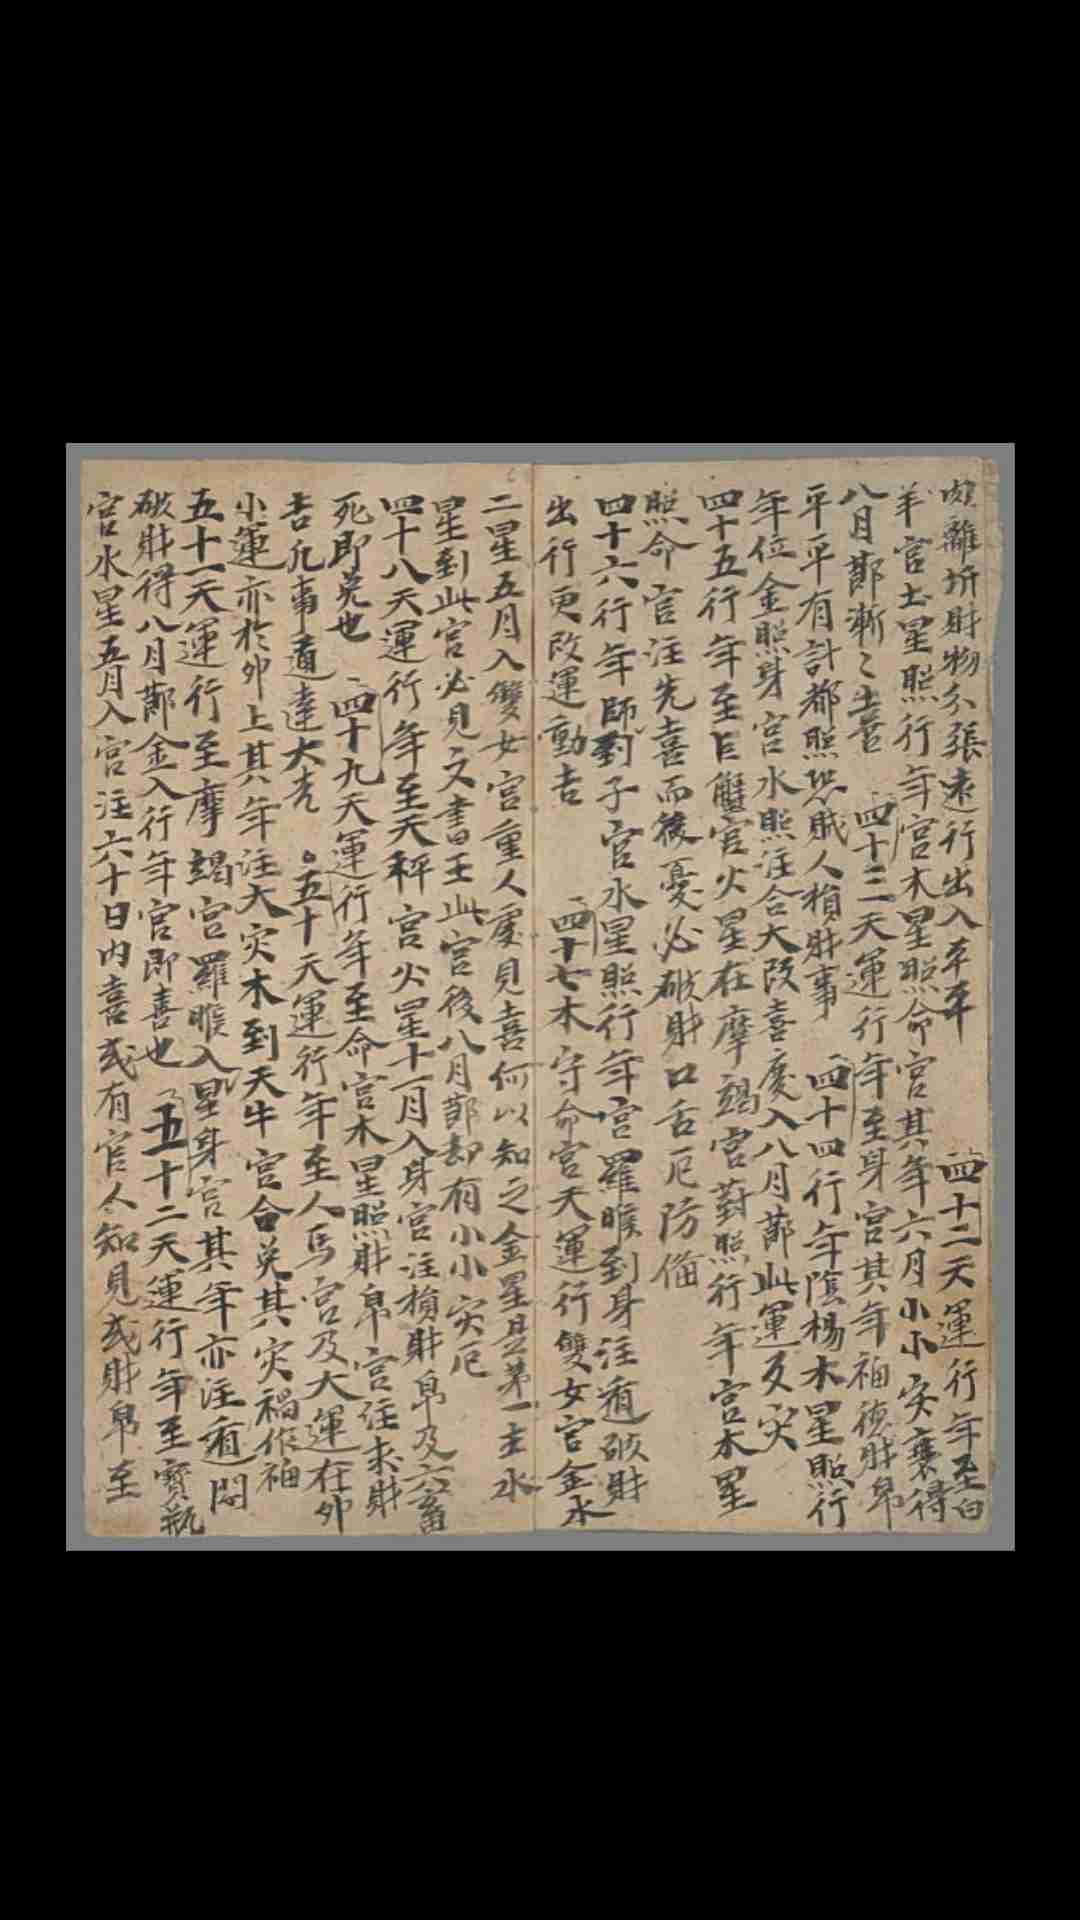 離坼財物分張遠行出入平平 四十二天運行年至白
羊宮土星照行年宮木星照命宮其年六月小小灾襄得
八月節漸々吉喜 四十三天運行年至身宮其年福德財帛
平平有計都照恐賊人損財事 四十四行年陰楊木星照行
年位金照身宮水照注合大改喜慶入八月節此運及灾
四十五行年至巨蟹宮火星在摩竭宮對照行年宮木星
照命宮注先喜而後憂必破財口舌厄防備
四十六行年師子宮水星照行年宮羅睺到身注逥破財
出行更改運動吉 四十七木守命宮天運行雙女宮金水
二星五月入雙女宮重人慶見喜何以知之金星是第一主水
星到此宮必見文書王此宮後八月節却有小小灾厄
四十八天運行年至天秤宮火星十一月入身宮注損財帛及六畜
死即免也 四十九天運行年至命宮木星照財帛宮注求財
吉凡事道達大吉 五十天運行年至人馬宮及大運在卯
小運亦於卯上其年注大灾木到天牛宮合免其灾禍作福
五十一天運行至摩竭宮羅睺入星身宮其年亦注逥悶
破財得八月節金入行年宮即喜也 五十二天運行年至寶瓶
宮水星五月入宮注六十日內喜或有官人知見或財帛至